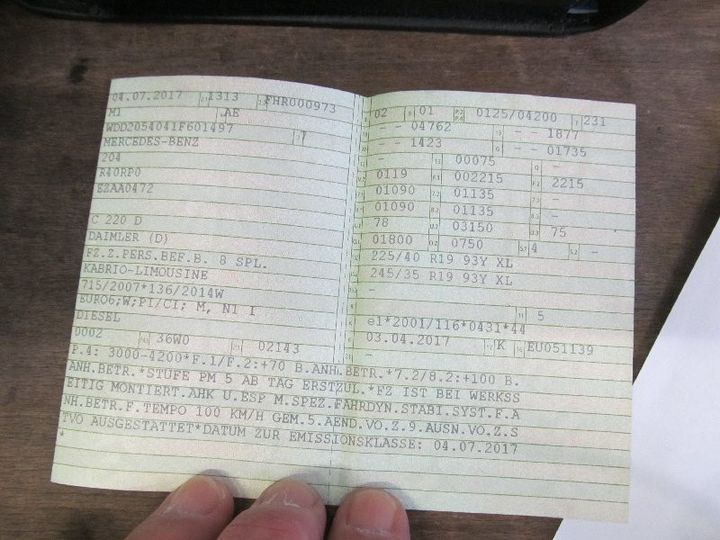 04.07.2017 1313 FHR000973
M1 AE
WDD2054041F601497 7
MERCEDES-BENZ
204
R40RP0
EZAA0472
C 220 D
DAIMLER (D)
FZ.Z.PERS.BEF.B. 8 SPL.
KABRIO-LIMOUSINE
715/2007*136/2014W
EURO6;W;PI/CI; M, N1 I
DIESEL
0002 36W0 02143
02 01 0125/04200 231
- - 04762 - - 1877
- - 1423 - - 01735
- 00075
0119 002215 2215
01090 01135 -
01090 01135 -
78 03150 75
01800 0750 4 -
225/40 R19 93Y XL
245/35 R19 93Y XL
-
5
e1*2001/116*0431*44
03.04.2017 K EU051139
-
P.4: 3000-4200*F.1/F.2:+70 B.ANH.BETR.*7.2/8.2:+100 B.
ANH.BETR.*STUFE PM 5 AB TAG ERSTZUL.*FZ IST BEI WERKSS
EITIG MONTIERT.AHK U.ESP M.SPEZ.FAHRDYN.STABI.SYST.F.A
NH.BETR.F.TEMPO 100 KM/H GEM.5.AEND.VO.Z.9.AUSN.VO.Z.S
TVO AUSGESTATTET*DATUM ZUR EMISSIONSKLASSE: 04.07.2017
*